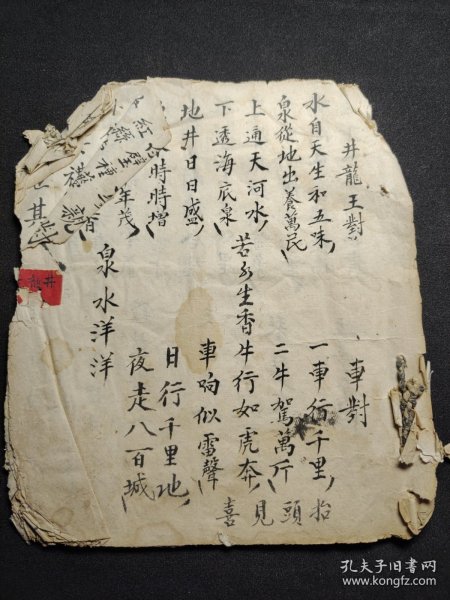 井龍王對
水自天生和五味
泉從地出養萬民
上通天河水
下透海底泉
地井日日盛
時時增
年茂
紅
其
苦
生香
泉水洋洋
井龍
車對
一車行千里
二牛駕萬斤
牛行如虎奔
車响似雷聲
日行千里地
夜走八百城
抬頭見喜
孔夫子旧书网
www.kongfz.com